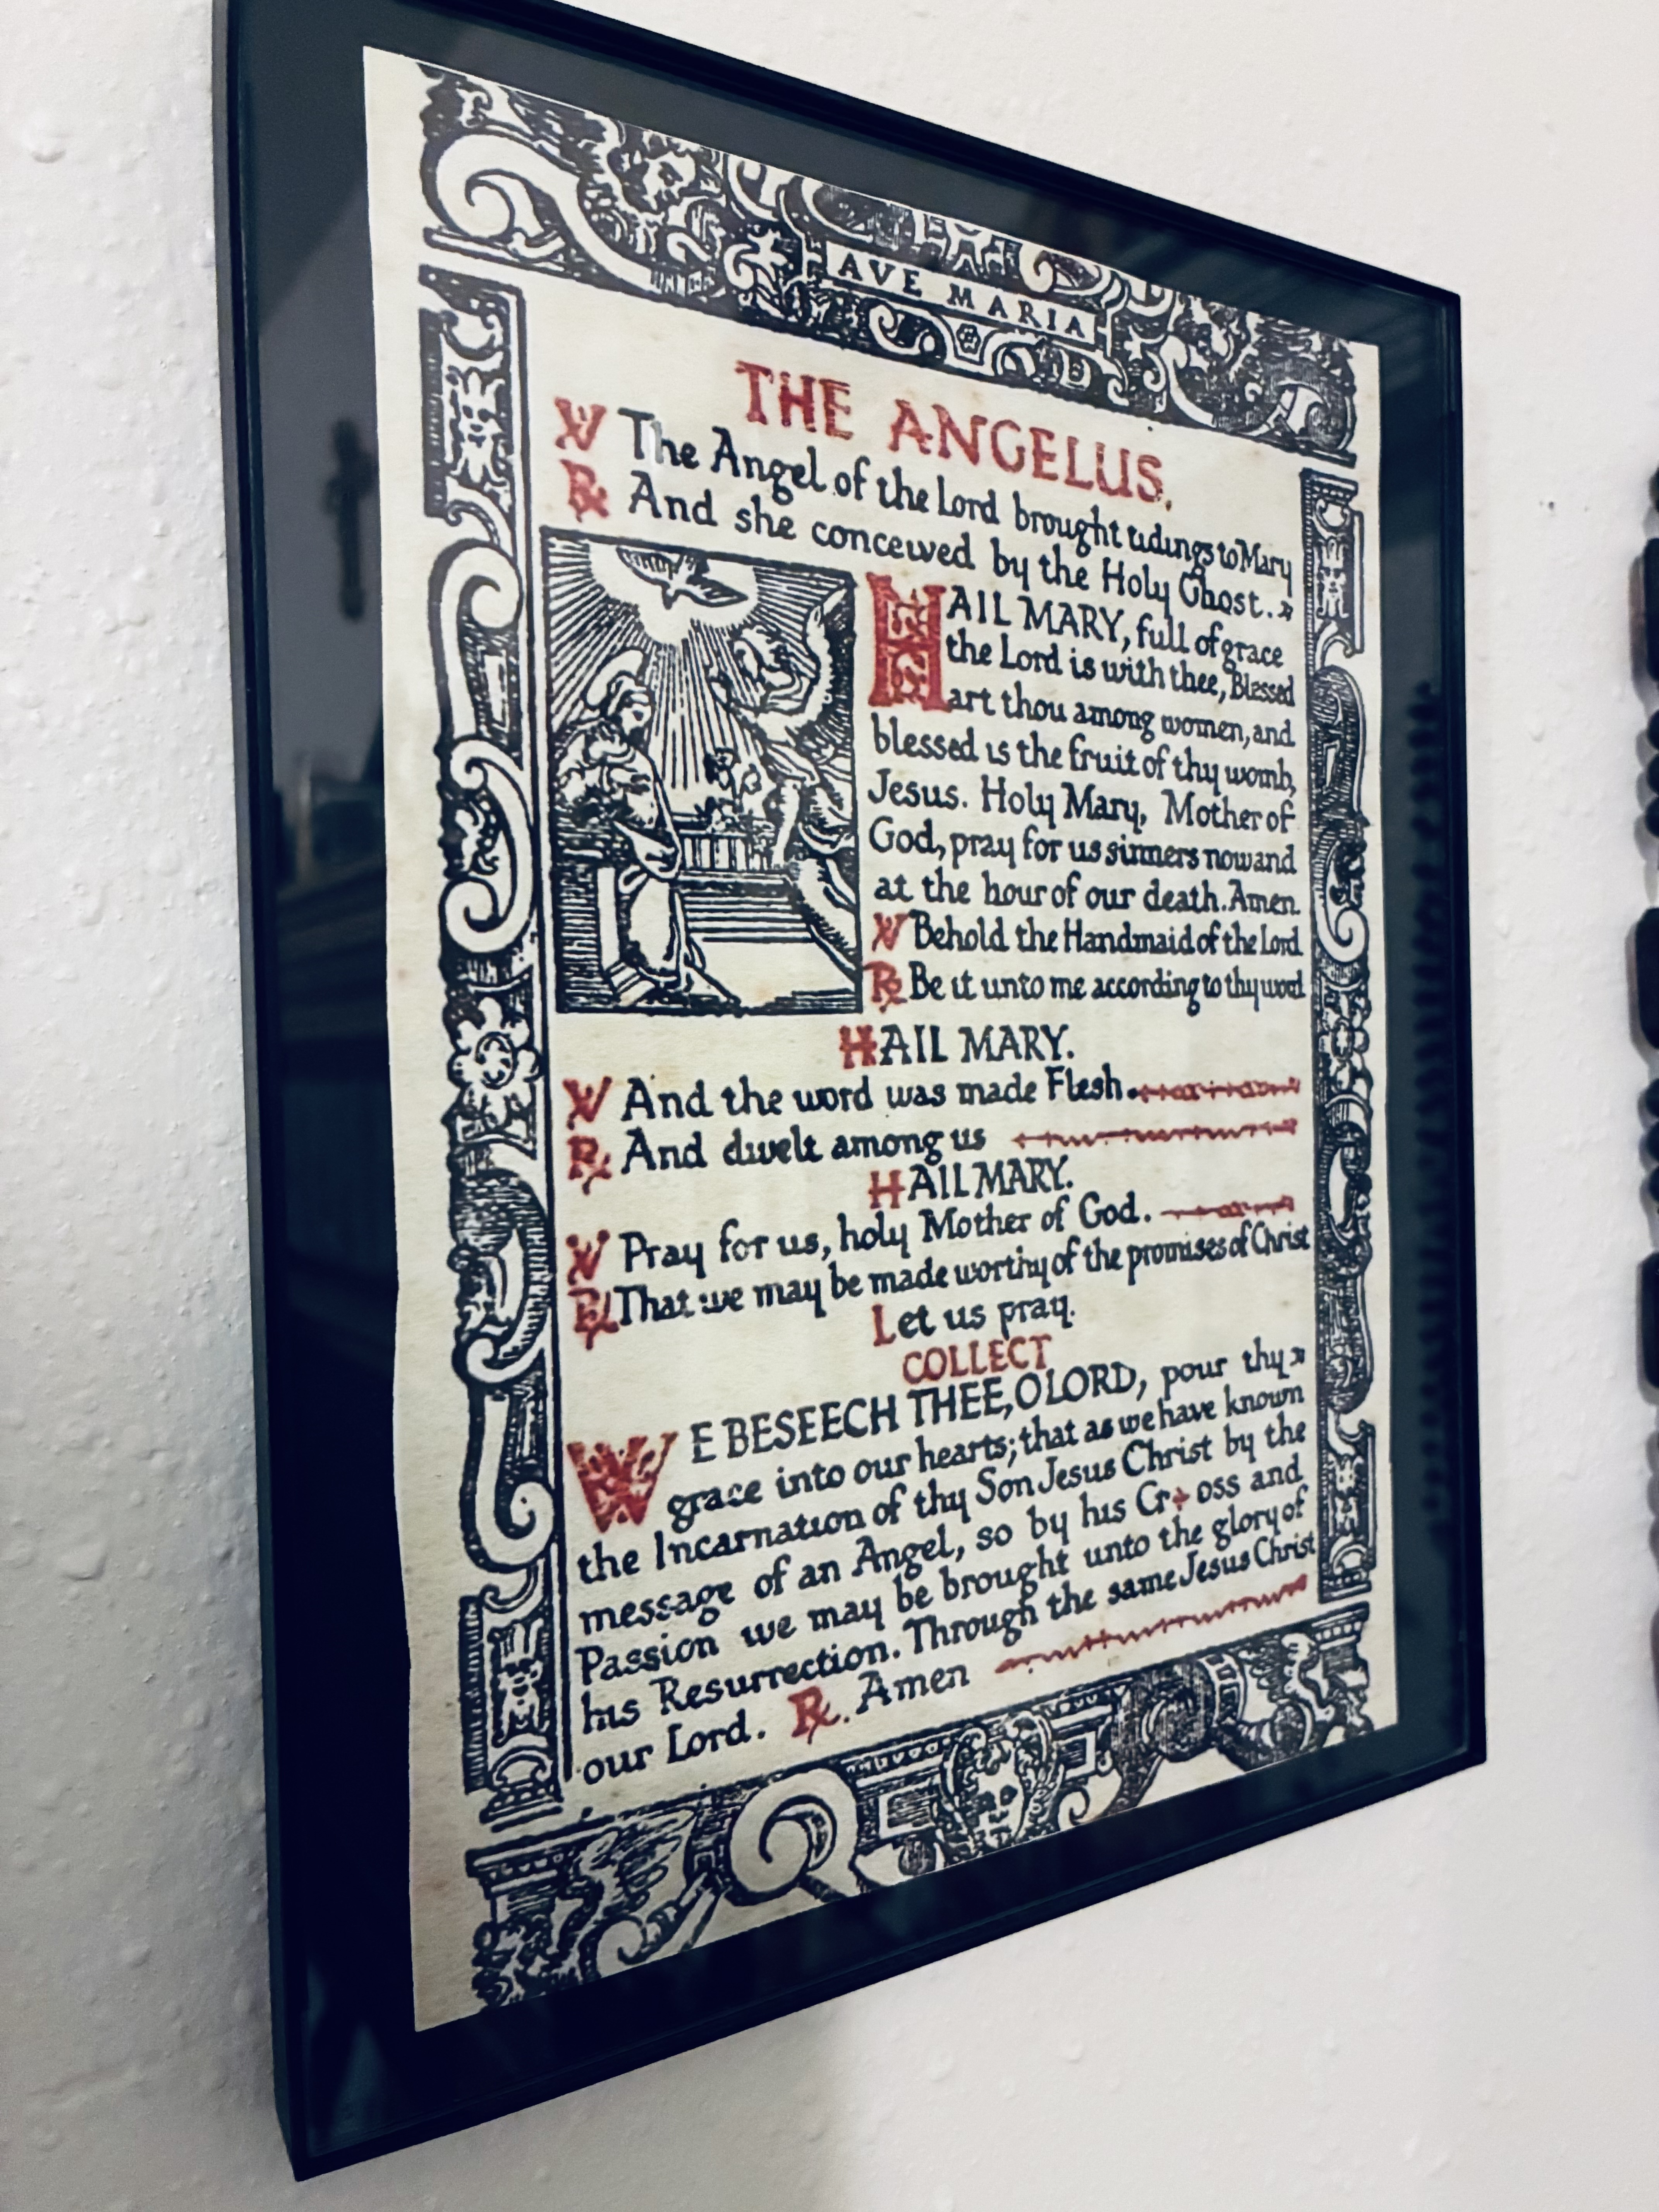 AVE MARIA
THE ANGELUS.
℣ The Angel of the Lord brought tidings to Mary
℟ And she conceived by the Holy Ghost.
HAIL MARY, full of grace
the Lord is with thee, Blessed
art thou among women, and
blessed is the fruit of thy womb,
Jesus. Holy Mary, Mother of
God, pray for us sinners now and
at the hour of our death. Amen.
℣ Behold the Handmaid of the Lord
℟ Be it unto me according to thy word
HAIL MARY.
℣ And the word was made Flesh.
℟ And dwelt among us
HAIL MARY.
℣ Pray for us, holy Mother of God.
℟ That we may be made worthy of the promises of Christ
Let us pray.
COLLECT
WE BESEECH THEE, O LORD, pour thy
grace into our hearts; that as we have known
the Incarnation of thy Son Jesus Christ by the
message of an Angel, so by his Cr+oss and
Passion we may be brought unto the glory of
his Resurrection. Through the same Jesus Christ
our Lord. ℟. Amen